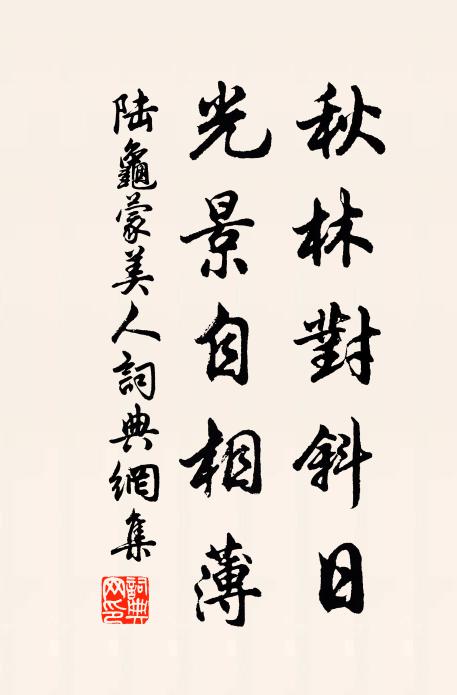 秋林對斜日
光景自相薄
陸龜蒙美人詞典網集
詞典網印